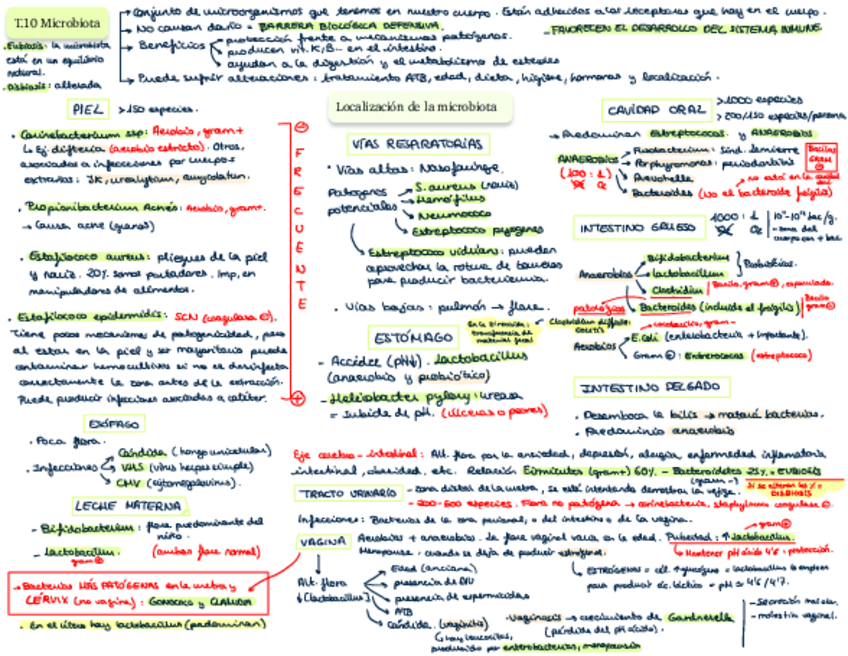 T.10 Microbiota
Conjunto de microorganismos que tenemos en nuestro cuerpo. Están adheridas a los receptores que hay en el cuerpo.
No causan daño = BARRERA BIOLÓGICA DEFENSIVA.
- FAVORECEN EL DESARROLLO DEL SISTEMA INMUNE.
Beneficios
protección frente a mecanismos patógenos.
producen vit. K, B... en el intestino.
ayudan a la digestión y el metabolismo de esteroles
Puede sufrir alteraciones: tratamiento ATB, edad, dieta, higiene, hormonas y localización.
. Eubiosis: la microbiota
está en un equilibrio
natural.
. Disbiosis: alterada
PIEL
>150 especies.
. Corinebacterium ssp: Aerobio, gram+
Ej. difteria (aerobio estricto). Otros,
asociados a infecciones por cuerpos
extraños: JK, urealyticum, amycolatum.
. Propionibacterium Acnés: Aerobio, gram+.
→ Causa acné (granos)
. Estafilococo aureus: pliegues de la piel
y nariz. 20% somos portadores. Imp. en
manipuladores de alimentos.
. Estafilococo epidermidis: SCN (coagulasa ⊖).
Tiene pocos mecanismos de patogenicidad, pero
al estar en la piel y ser mayoritario puede
contaminar hemocultivos si no se desinfecta
correctamente la zona antes de la extracción.
Puede producir infecciones asociadas a catéter.
⊖
FRECUENTE
⊕
ESÓFAGO
. Poca flora.
. Infecciones
Cándida (hongo unicelular)
VHS (virus herpes simple)
CMV (citomegalovirus).
LECHE MATERNA
- Bifidobacterium: flora predominante del
niño.
- Lactobacillus
gram ⊕
(ambas flora normal)
→ Bacterias MÁS PATÓGENAS en la uretra y
CÉRVIX (no vagina): GONOCOCO y CLAMIDIA
. En el útero hay lactobacillus (predominan)
Localización de la microbiota
VÍAS RESPIRATORIAS
. Vías altas: Nasofaringe.
Patógenos
potenciales
S. aureus (nariz)
Hemófilus
Neumococo
Estreptococo pyogenes
Estreptococo viridans: pueden
aprovechar la rotura de
para producir bacteriemia.
. Vías bajas: pulmón → flora.
ESTÓMAGO
- Acidez (pH↓). Lactobacillus
(anaerobio y probiótico)
- Heliobacter pylory: ureasa
= subida de pH. (úlceras o peores)
CAVIDAD ORAL
>1000 especies
> 200/150 especies/persona
→ Predominan Estreptococos y ANAEROBIOS
ANAEROBIOS
(100 : 1)
Fusobacterium: sind. Lemierre
Porphyromonas: periodontitis
Prevotella
Bacteroides (No el bacteroide fragilis)
Bacilos
GRAM
⊖
→ no está en la cavidad
oral
INTESTINO GRUESO
1000 : 1
- zona del
cuerpo con + bac.
Anaerobios
Bifidobacterium
lactobacillum
Probióticos.
Clostridium
Bacilo, gram ⊕, esporulado.
Bacteroides (incluido el fragilis)
Bacilo
gram ⊖
patológico
Clostridium difficile:
Aerobios
E. coli (enterobacteria + importante).
Gram ⊕: Enterococos (estreptococo)
INTESTINO DELGADO
. Desemboca la bilis → matará bacterias.
. Predominio anaerobio
Eje cerebro-intestinal: Alt. flora por la ansiedad, depresión, alergia, enfermedad inflamatoria
intestinal, obesidad, etc. Relación Firmicutes (gram+) 60% - Bacteroidetes 25% = EUBIOSIS
(gram-)
Si se alteran los % =
DISBIOSIS
TRACTO URINARIO
- zona distal de la uretra, se está intentando demostrar la vejiga.
- 200-500 especies. Flora no patógena → corinebacteria, staphylococcus coagulasa ⊖.
Infecciones: Bacterias de la zona perianal, o del intestino o de la vagina.
VAGINA
Aerobios + anaerobios. La flora vaginal varía en la edad. Pubertad: ↑ Lactobacillus.
gram ⊕
Menopausia: cuando se deja de producir estrógenos.
↳ Mantener pH ácido 4'5 = protección.
ESTRÓGENOS = cél. ↑ glucógeno = lactobacillus lo emplean
para producir ác. láctico = pH ≈ 4'5/4'7.
Alt. flora
↓ (lactobacillus)
Edad (anciana)
presencia de DIU
presencia de espermicidas
ATB
Cándida. (vaginitis)
↳ hay leucocitos,
producido por enterobacterias, menopausia
. Vaginosis → crecimiento de Gardnerella
(pérdida del pH ácido).
- Secreción mal olor.
- molestia vaginal.